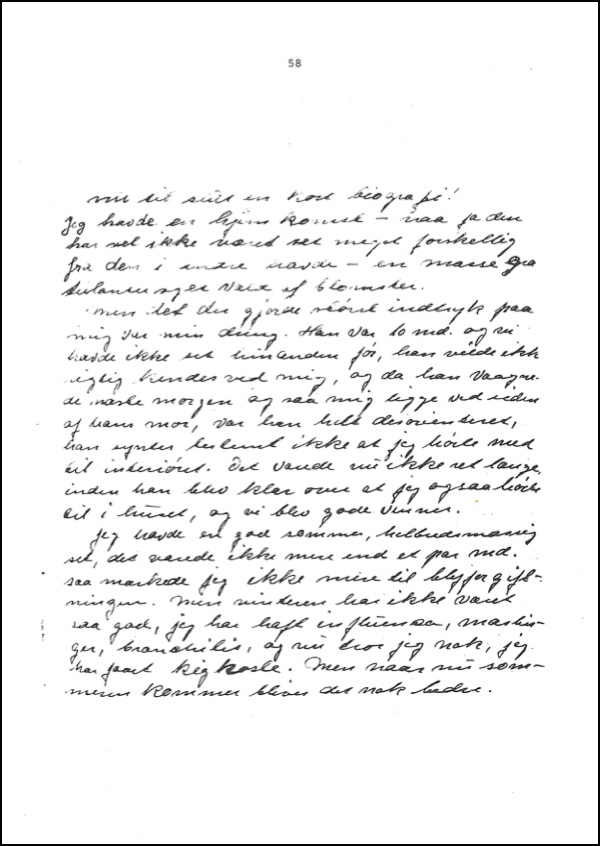 58
nu til sidst en kort biografi!
Jeg havde en hjem komst – naa ja den
har vel ikke været set meget forskellig
fra den i andre havde – en masse gra
tulanter og et væld af blomster.
Men det der gjorde størst indtryk paa
mig var min dreng. Han var 10 md. og vi
havde ikke set hinanden før, han vilde ikk
rigtig kendes ved mig, og da han vaagne-
de næste morgen og saa mig ligge ved siden
af hans mor, var han helt desorienteret,
han syntes bestemt ikke at jeg hørte med
til interiøret. Det varede nu ikke ret længe,
inden han blev klar over at jeg ogsaa hørte
til i huset, og vi blev gode venner.
Jeg havde en god sommer, helbredsmæssig
set, det varede ikke mere end et par md.
saa mærkede jeg ikke mere til blyforgift-
ningen. Men vinteren har ikke været
saa god, jeg har haft influensa, mæslin-
ger, bronchitis, og nu tror jeg nok, jeg
har faaet kighoste. Men naar nu som-
meren kommer bliver det nok bedre.